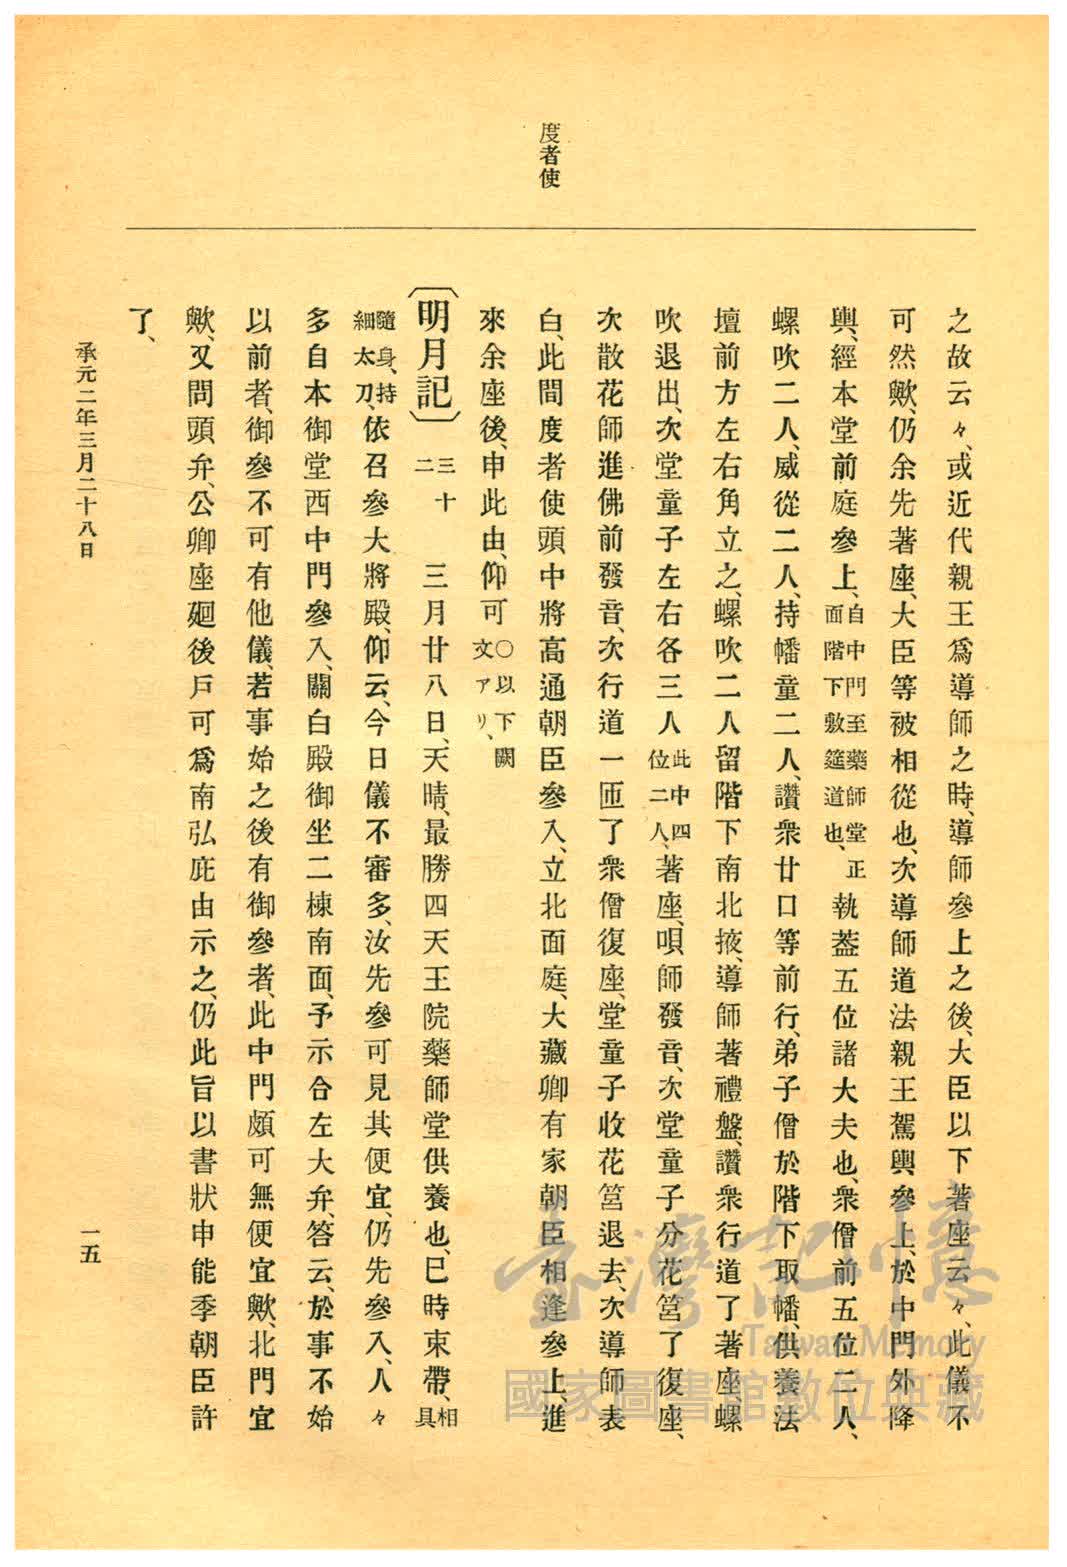 度者使
之故云々、或近代親王爲導師之時、導師參上之後、大臣以下著座云々、此儀不
可然歟、仍余先著座、大臣等被相從也、次導師道法親王駕輿參上、於中門外降
輿、經本堂前庭參上、自中門至藥師堂正面階下敷筵道也、執蓋五位諸大夫也、衆僧前五位二人、
螺吹二人、威從二人、持幡童二人、讚衆廿口等前行、弟子僧於階下取幡、供養法
壇前方左右角立之、螺吹二人留階下南北掖、導師著禮盤、讚衆行道了著座、螺
吹退出、次堂童子左右各三人此中四位二人、著座、唄師發音、次堂童子分花筥了復座、
次散花師進佛前發音、次行道一匝了衆僧復座、堂童子收花筥退去、次導師表
白、此間度者使頭中將高通朝臣參入、立北面庭、大藏卿有家朝臣相逢參上、進
來余座後、申此由、仰可〇以下闕文アリ、
〔明月記〕三十二 三月廿八日、天晴、最勝四天王院藥師堂供養也、巳時束帶、相具
隨身、持細太刀、依召參大將殿、仰云、今日儀不審多、汝先參可見其便宜、仍先參入、人々
多自本御堂西中門參入、關白殿御坐二棟南面、予示合左大弁、答云、於事不始
以前者、御參不可有他儀、若事始之後有御參者、此中門頗可無便宜歟、北門宜
歟、又問頭弁、公卿座廻後戶可爲南弘庇由示之、仍此旨以書狀申能季朝臣許
了、
承元二年三月二十八日
一五
臺灣記憶
Taiwan Memory
國家圖書館數位典藏